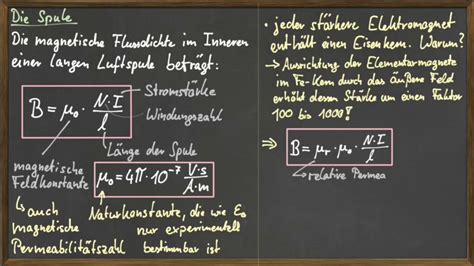 Die Spule
Die magnetische Flussdichte im Inneren
einer langen Luftspule beträgt:
B = μ₀ · N·I / l
Stromstärke
Windungszahl
Länge der Spule
magnetische
Feldkonstante
μ₀ = 4π · 10⁻⁷ V·s / A·m
↳ auch
magnetische
Permeabilitätszahl
Naturkonstante, die wie ε₀
nur experimentell
bestimmbar ist
• jeder stärkere Elektromagnet
enthält einen Eisenkern. Warum?
→ Ausrichtung der Elementarmagnete
im Fe-Kern durch das äußere Feld
erhöht deren Stärke um einen Faktor
100 bis 1000!
⇒ B = μᵣ · μ₀ · N·I / l
relative Permea